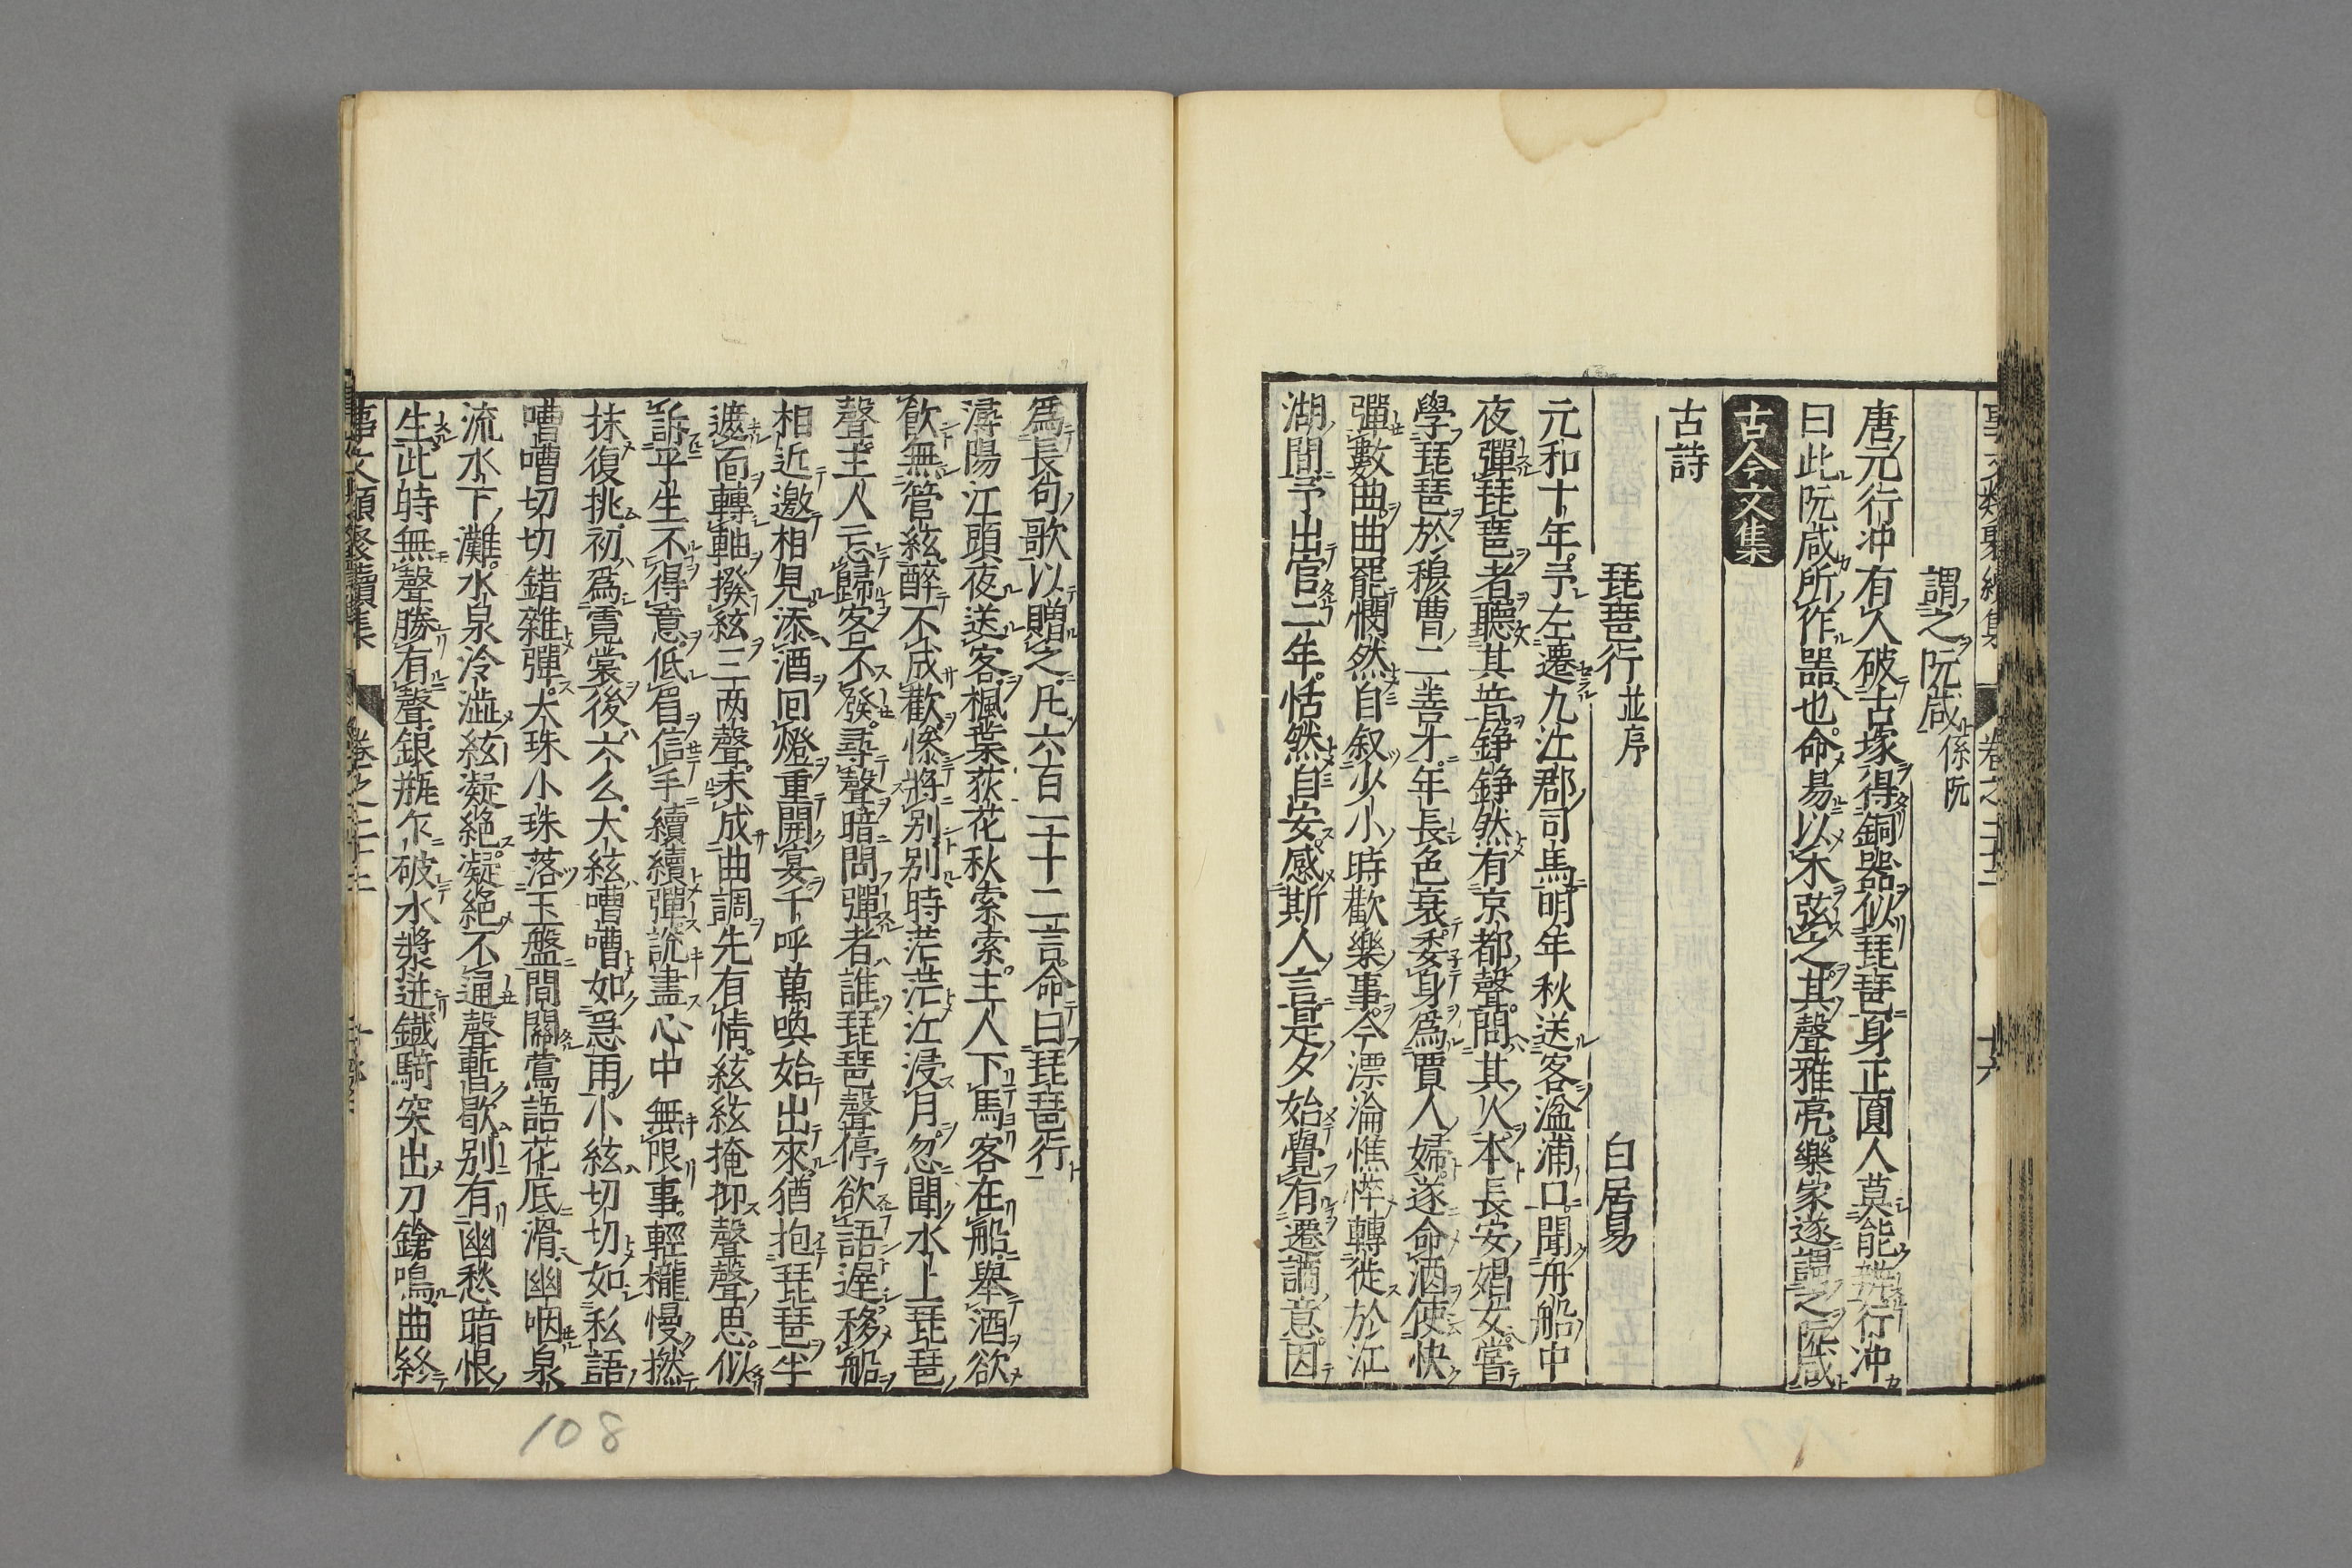 謂之阮咸係阮
唐元行冲有人破古塚得銅器似琵琶身正圓人莫能辨行冲
曰此阮咸所作噐也命易以木弦之其聲雅亮樂家遂謂之阮咸
古今文集
古詩
琵琶行並序 白居易
元和十年予左遷九江郡司馬明年秋送客湓浦口聞舟船中
夜彈琵琶者聽其音錚錚然有京都聲問其人本長安娼女嘗
學琵琶於穆曹二善才年長色衰委身爲賈人婦遂命酒使快
彈數曲曲罷憫然自叙少小時歡樂事今漂淪憔悴轉徙於江
湖間予出官二年恬然自安感斯人言是夕始覺有遷謫意因
爲長句歌以贈之凡六百一十二言命曰琵琶行
潯陽江頭夜送客楓葉荻花秋索索主人下馬客在船舉酒欲
飲無管絃醉不成歡慘將别别時茫茫江浸月忽聞水上琵琶
聲主人忘歸客不發尋聲暗問彈者誰琵琶聲停欲語遲移船
相近邀相見添酒回燈重開宴千呼萬喚始出來猶抱琵琶半
遮面轉軸撥絃三两聲未成曲調先有情絃絃掩抑聲聲思似
訴平生不得意低眉信手續續彈說盡心中無限事輕攏慢撚
抹復挑初爲霓裳後六么大絃嘈嘈如急雨小絃切切如私語
嘈嘈切切錯雜彈大珠小珠落玉盤間關鶯語花底滑幽咽泉
流水下灘水泉冷澁絃凝絶凝絶不通聲暫歇别有幽愁暗恨
生此時無聲勝有聲銀瓶乍破水漿迸鐵騎突出刀鎗鳴曲終
108